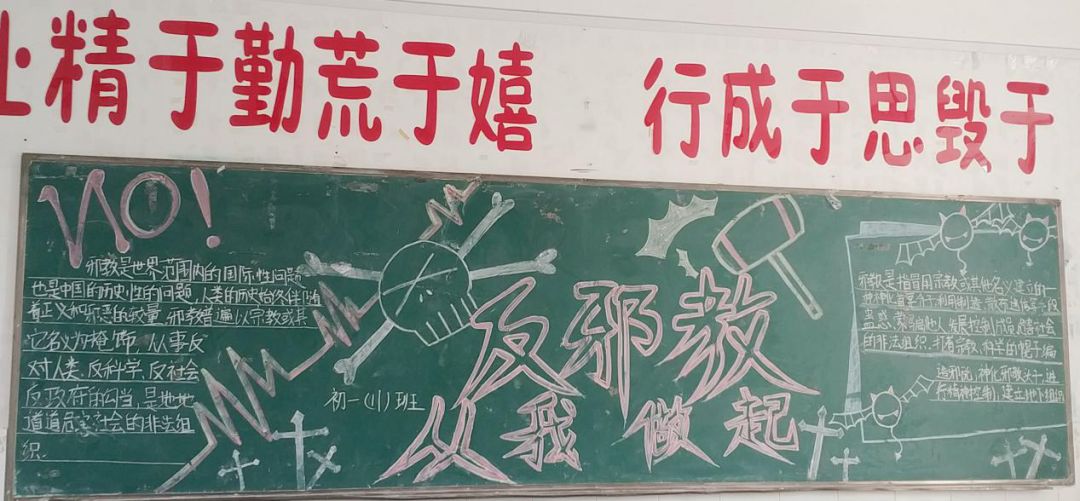 业精于勤荒于嬉 行成于思毁于
NO!
邪教是世界范围内的国际性问题
也是中国的历史性的问题,人类的历史始终伴随
着正义和邪恶的较量,邪教普遍以宗教或其
它名义为掩饰,从事反
对人类、反科学、反社会
反政府的勾当,是地地
道道危害社会的非法组
织.
初一(11)班
反邪教
从我做起
邪教是指冒用宗教或其他名义建立的一
神化首要分子利用制造、散布迷信等手段
蛊惑、蒙骗他人,发展控制成员危害社会
的非法组织,打着宗教、科学的幌子编
造邪说,神化邪教头子,进
行精神控制,建立地下组织